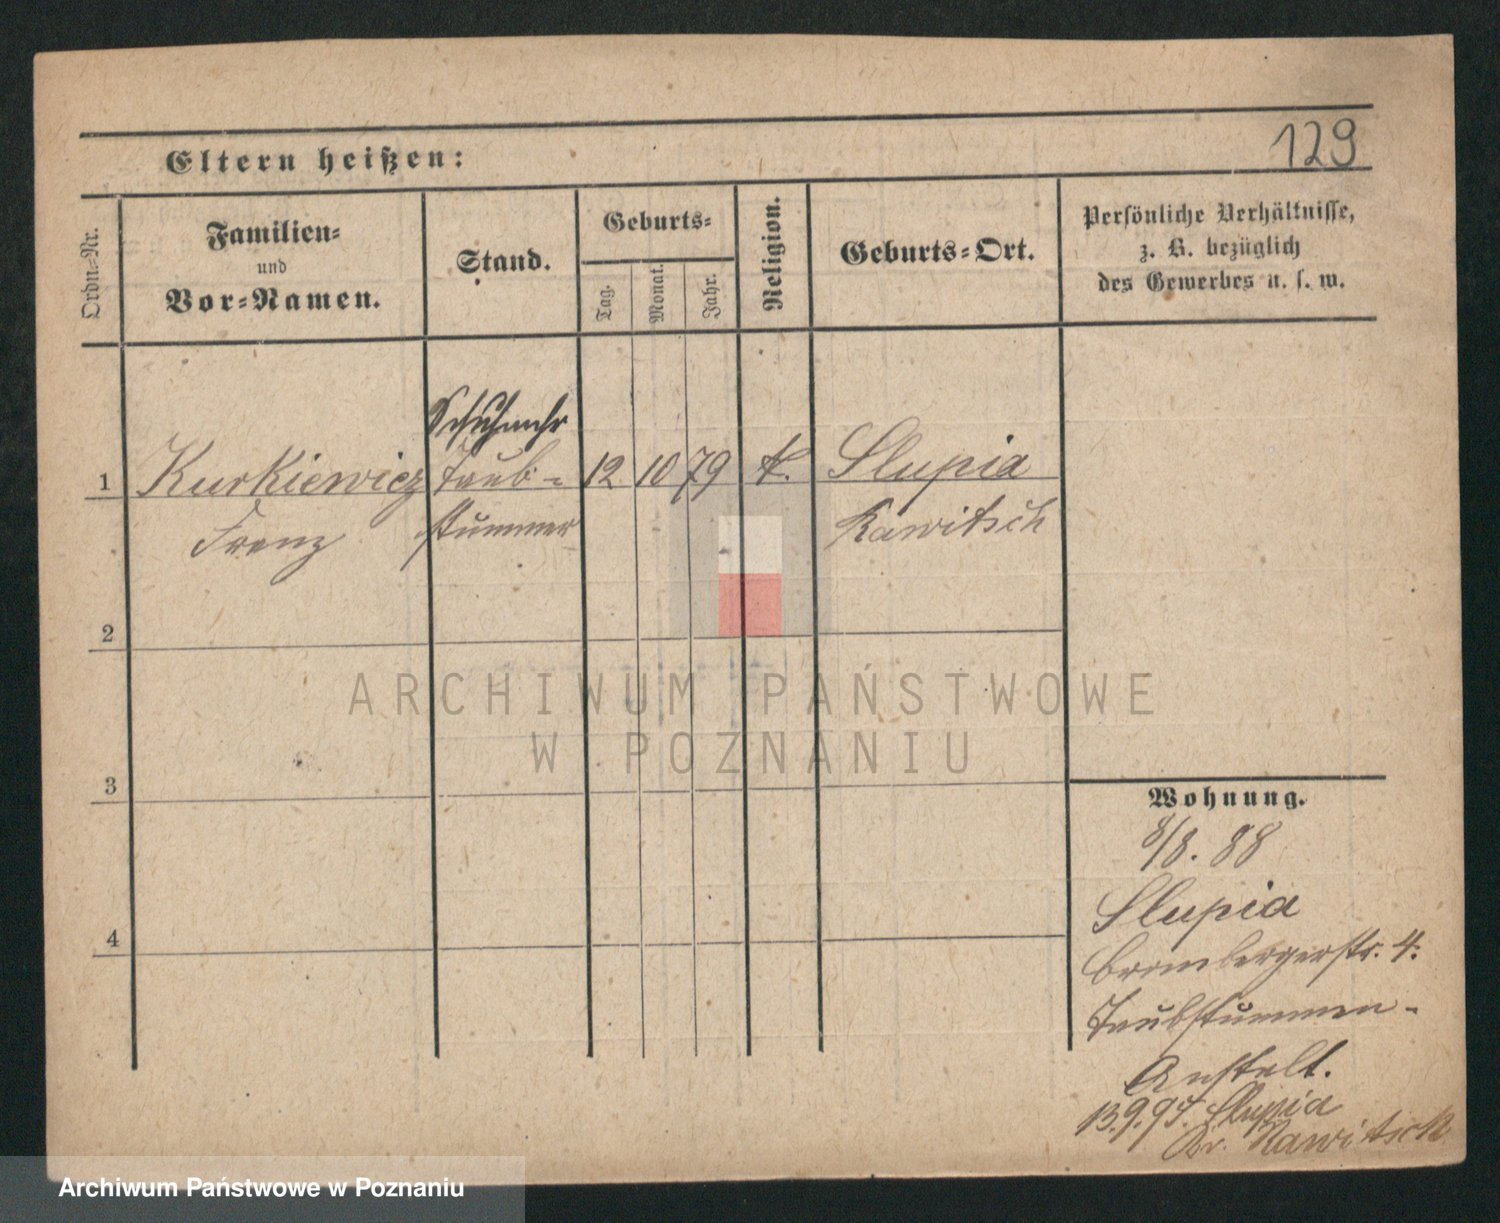 129
Eltern heißen:
Ordn.-Nr.
Familien-
und
Vor-Namen.
Stand.
Geburts-
Tag.
Monat.
Jahr.
Religion.
Geburts-Ort.
Persönliche Verhältnisse,
z. B. bezüglich
des Gewerbes u. s. w.
1
Kurkiewicz
Franz
Taub-
stummer
12 10 79 k. Slupia
Rawitsch
2
3
4
Wohnung.
8/8. 88
Slupia
Brombergerstr. 4.
Taubstummen-
Anstalt.
13.9.97. Slupia
Kr. Rawitsch
ARCHIWUM PAŃSTWOWE
W POZNANIU
Archiwum Państwowe w Poznaniu